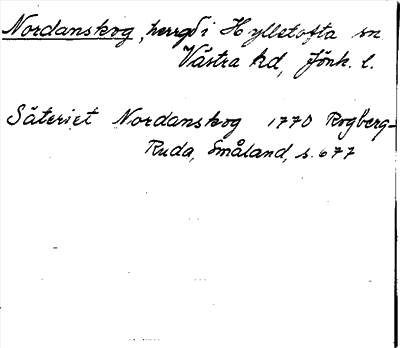 Nordanskog, herrgd i Hylletofta sn
Västra hd, Jönk. l.
Säteriet Nordanskog 1770 Rogberg-
Ruda, Småland, s. 677